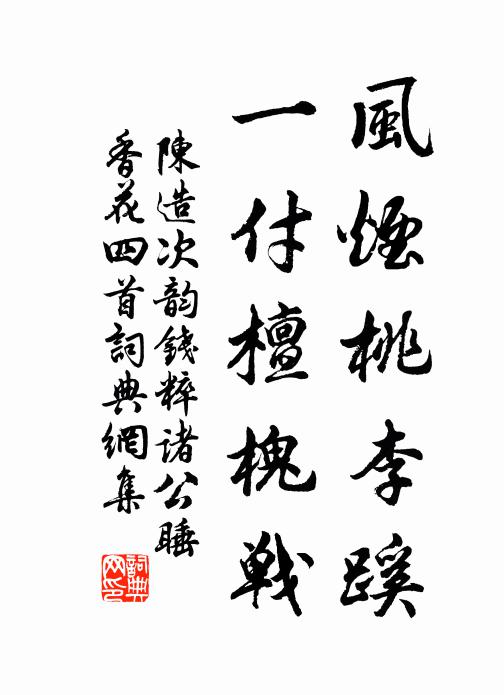 風煙桃李蹊
一付檀槐戰
陳造次韵錢粹諸公睡
香花四首詞典網集
詞典網印